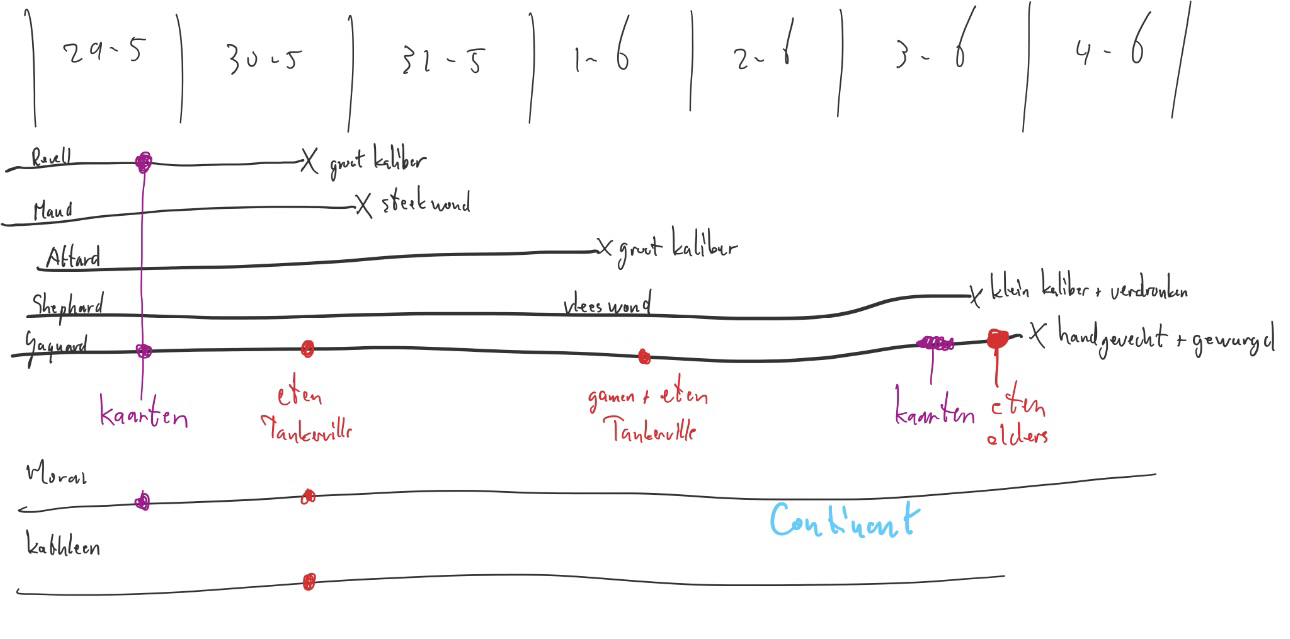 29-5 30-5 31-5 1-6 2-6 3-6 4-6
Revell X groot kaliber
Maud X steekwond
Attard X groot kaliber
Shephard vleeswond X klein kaliber + verdronken
Gaquard X handgevecht + gewurgd
kaarten eten gamen + eten kaarten eten
Tankerville Tankerville elders
Moral
Continent
Kathleen